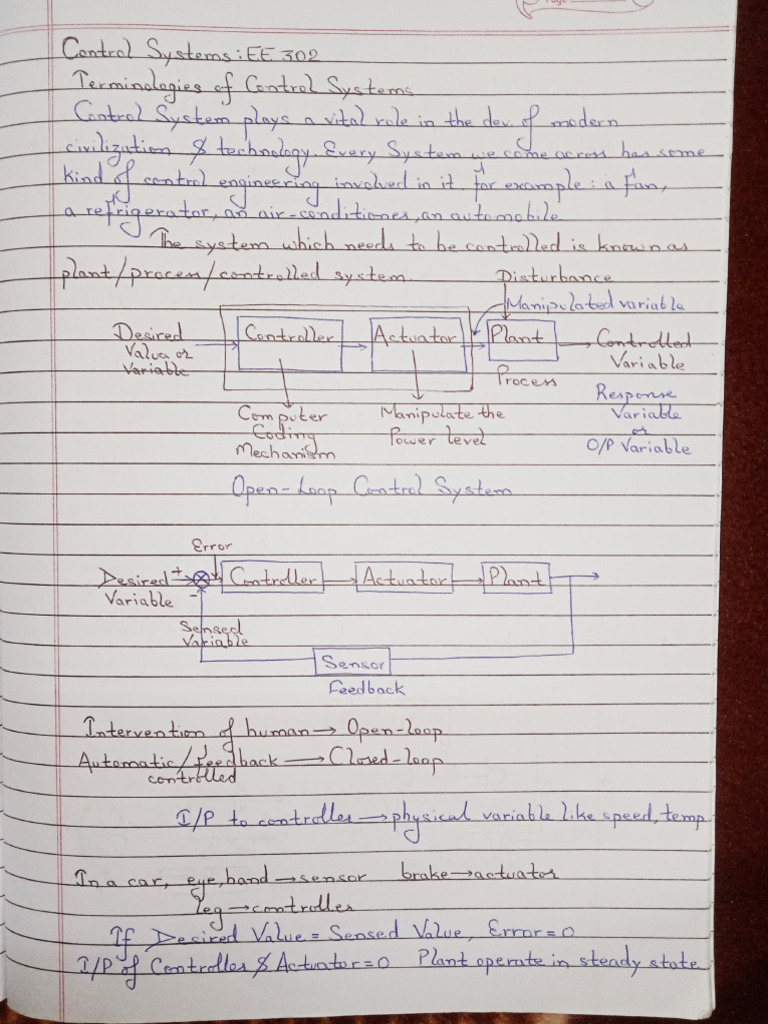 Page
Control Systems: EE 302
Terminologies of Control Systems
Control System plays a vital role in the dev. of modern
civilization & technology. Every System we come across has some
kind of control engineering involved in it for example: a fan,
a refrigerator, an air-conditioner, an automobile
The system which needs to be controlled is known as
plant/process/controlled system.
Disturbance
Manipulated variable
Desired Value or Variable
Controller
Actuator
Plant
Controlled Variable
Process
Computer Coding Mechanism
Manipulate the Power level
Response Variable or O/P Variable
Open-Loop Control System
Error
Desired Variable
+
-
Controller
Actuator
Plant
Sensed Variable
Sensor
Feedback
Intervention of human → Open-loop
Automatic/feedback → Closed-loop
controlled
I/P to controller → physical variable like speed, temp
In a car, eye, hand → sensor brake → actuator
leg → controller
If Desired Value = Sensed Value, Error = 0
I/P of Controller & Actuator = 0 Plant operate in steady state